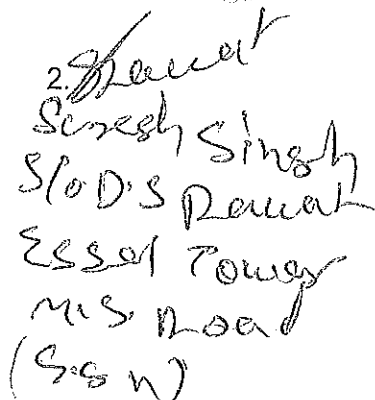 2. SRawat
Suresh Singh
S/o D.S Rawat
Essel Tower
M.S. Road
(S.S N)